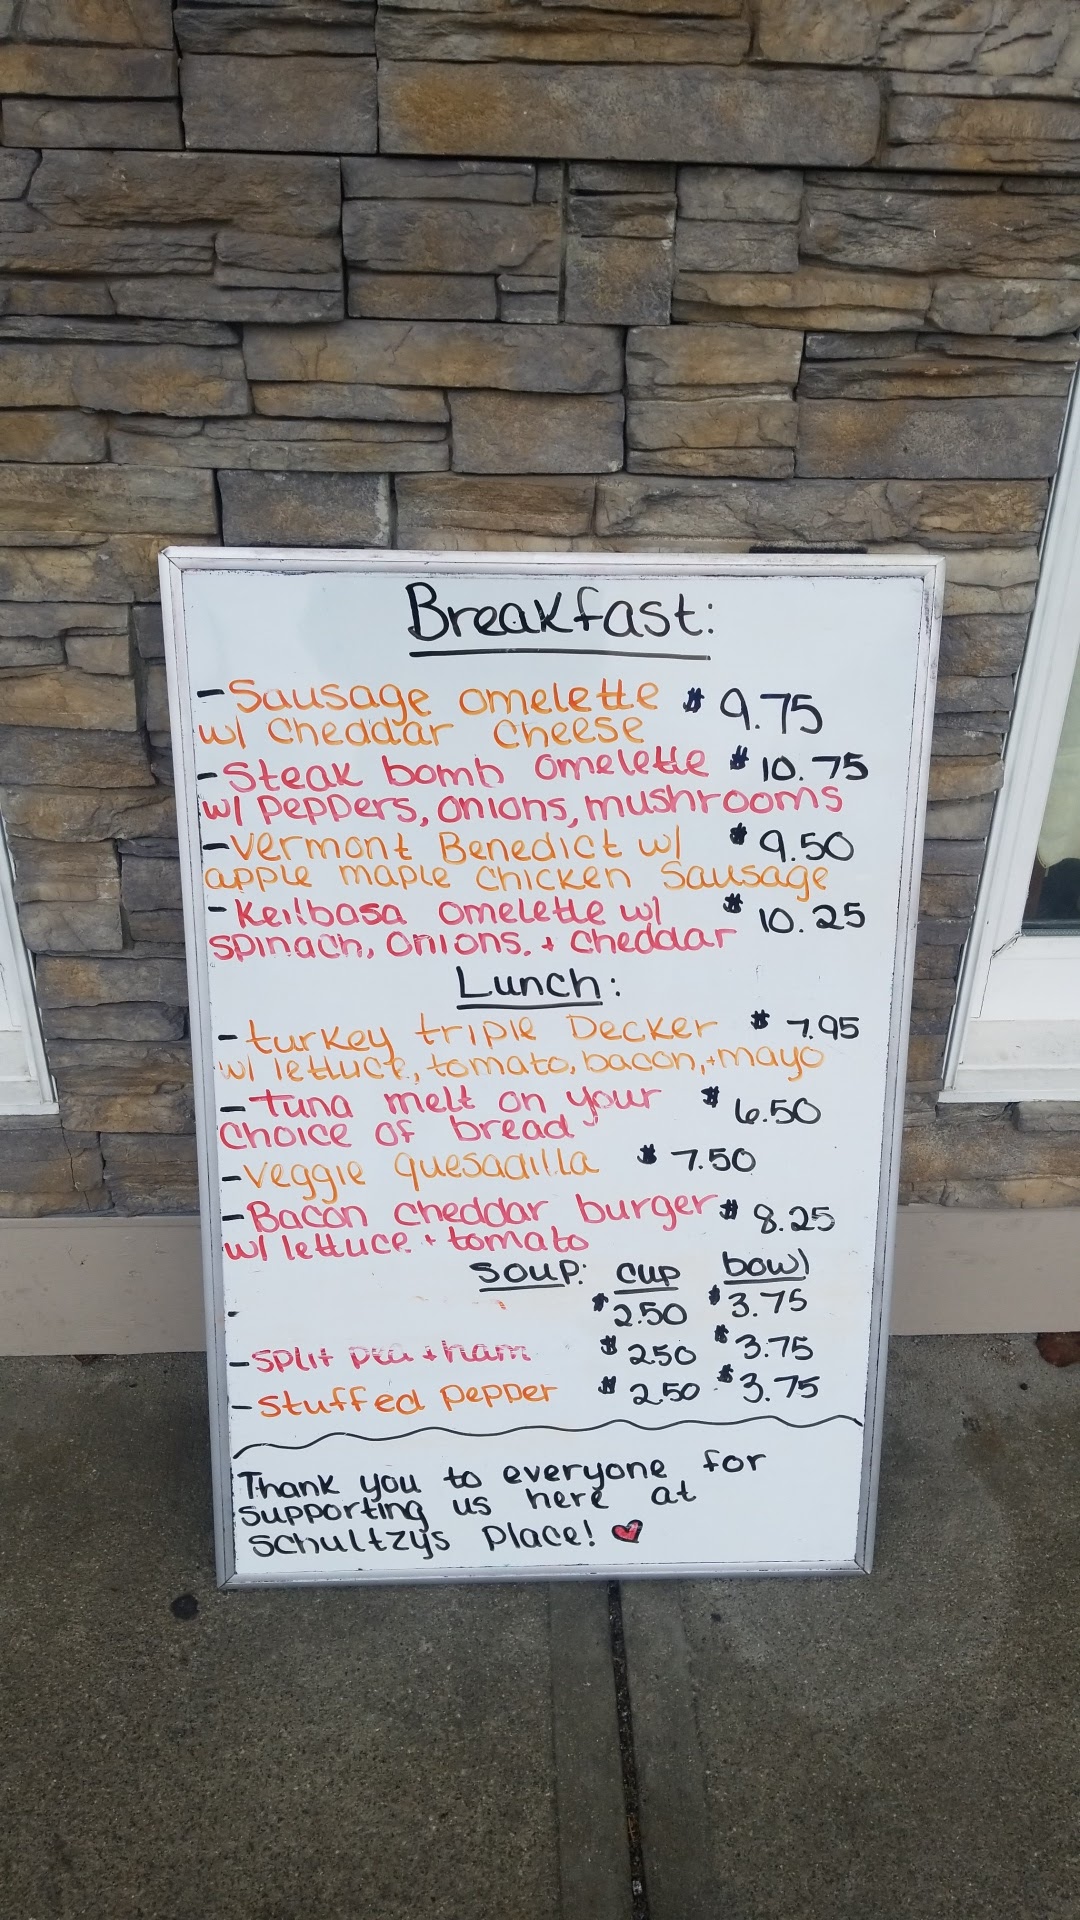 Breakfast:
- Sausage omelette $ 9.75
w/ cheddar cheese
- Steak bomb omelette $ 10.75
w/ peppers, onions, mushrooms
- Vermont Benedict w/ $ 9.50
apple maple chicken sausage
- Keilbasa omelette w/ $ 10.25
spinach, onions, + cheddar
Lunch:
- turkey triple Decker $ 7.95
w/ lettuce, tomato, bacon, + mayo
- tuna melt on your $ 6.50
choice of bread
- veggie quesadilla $ 7.50
- Bacon cheddar burger $ 8.25
w/ lettuce + tomato
soup: cup bowl
- $2.50 $3.75
- split pea + ham $ 2.50 $3.75
- stuffed pepper $ 2.50 $3.75
Thank you to everyone for
supporting us here at
Schultzys Place! ♥